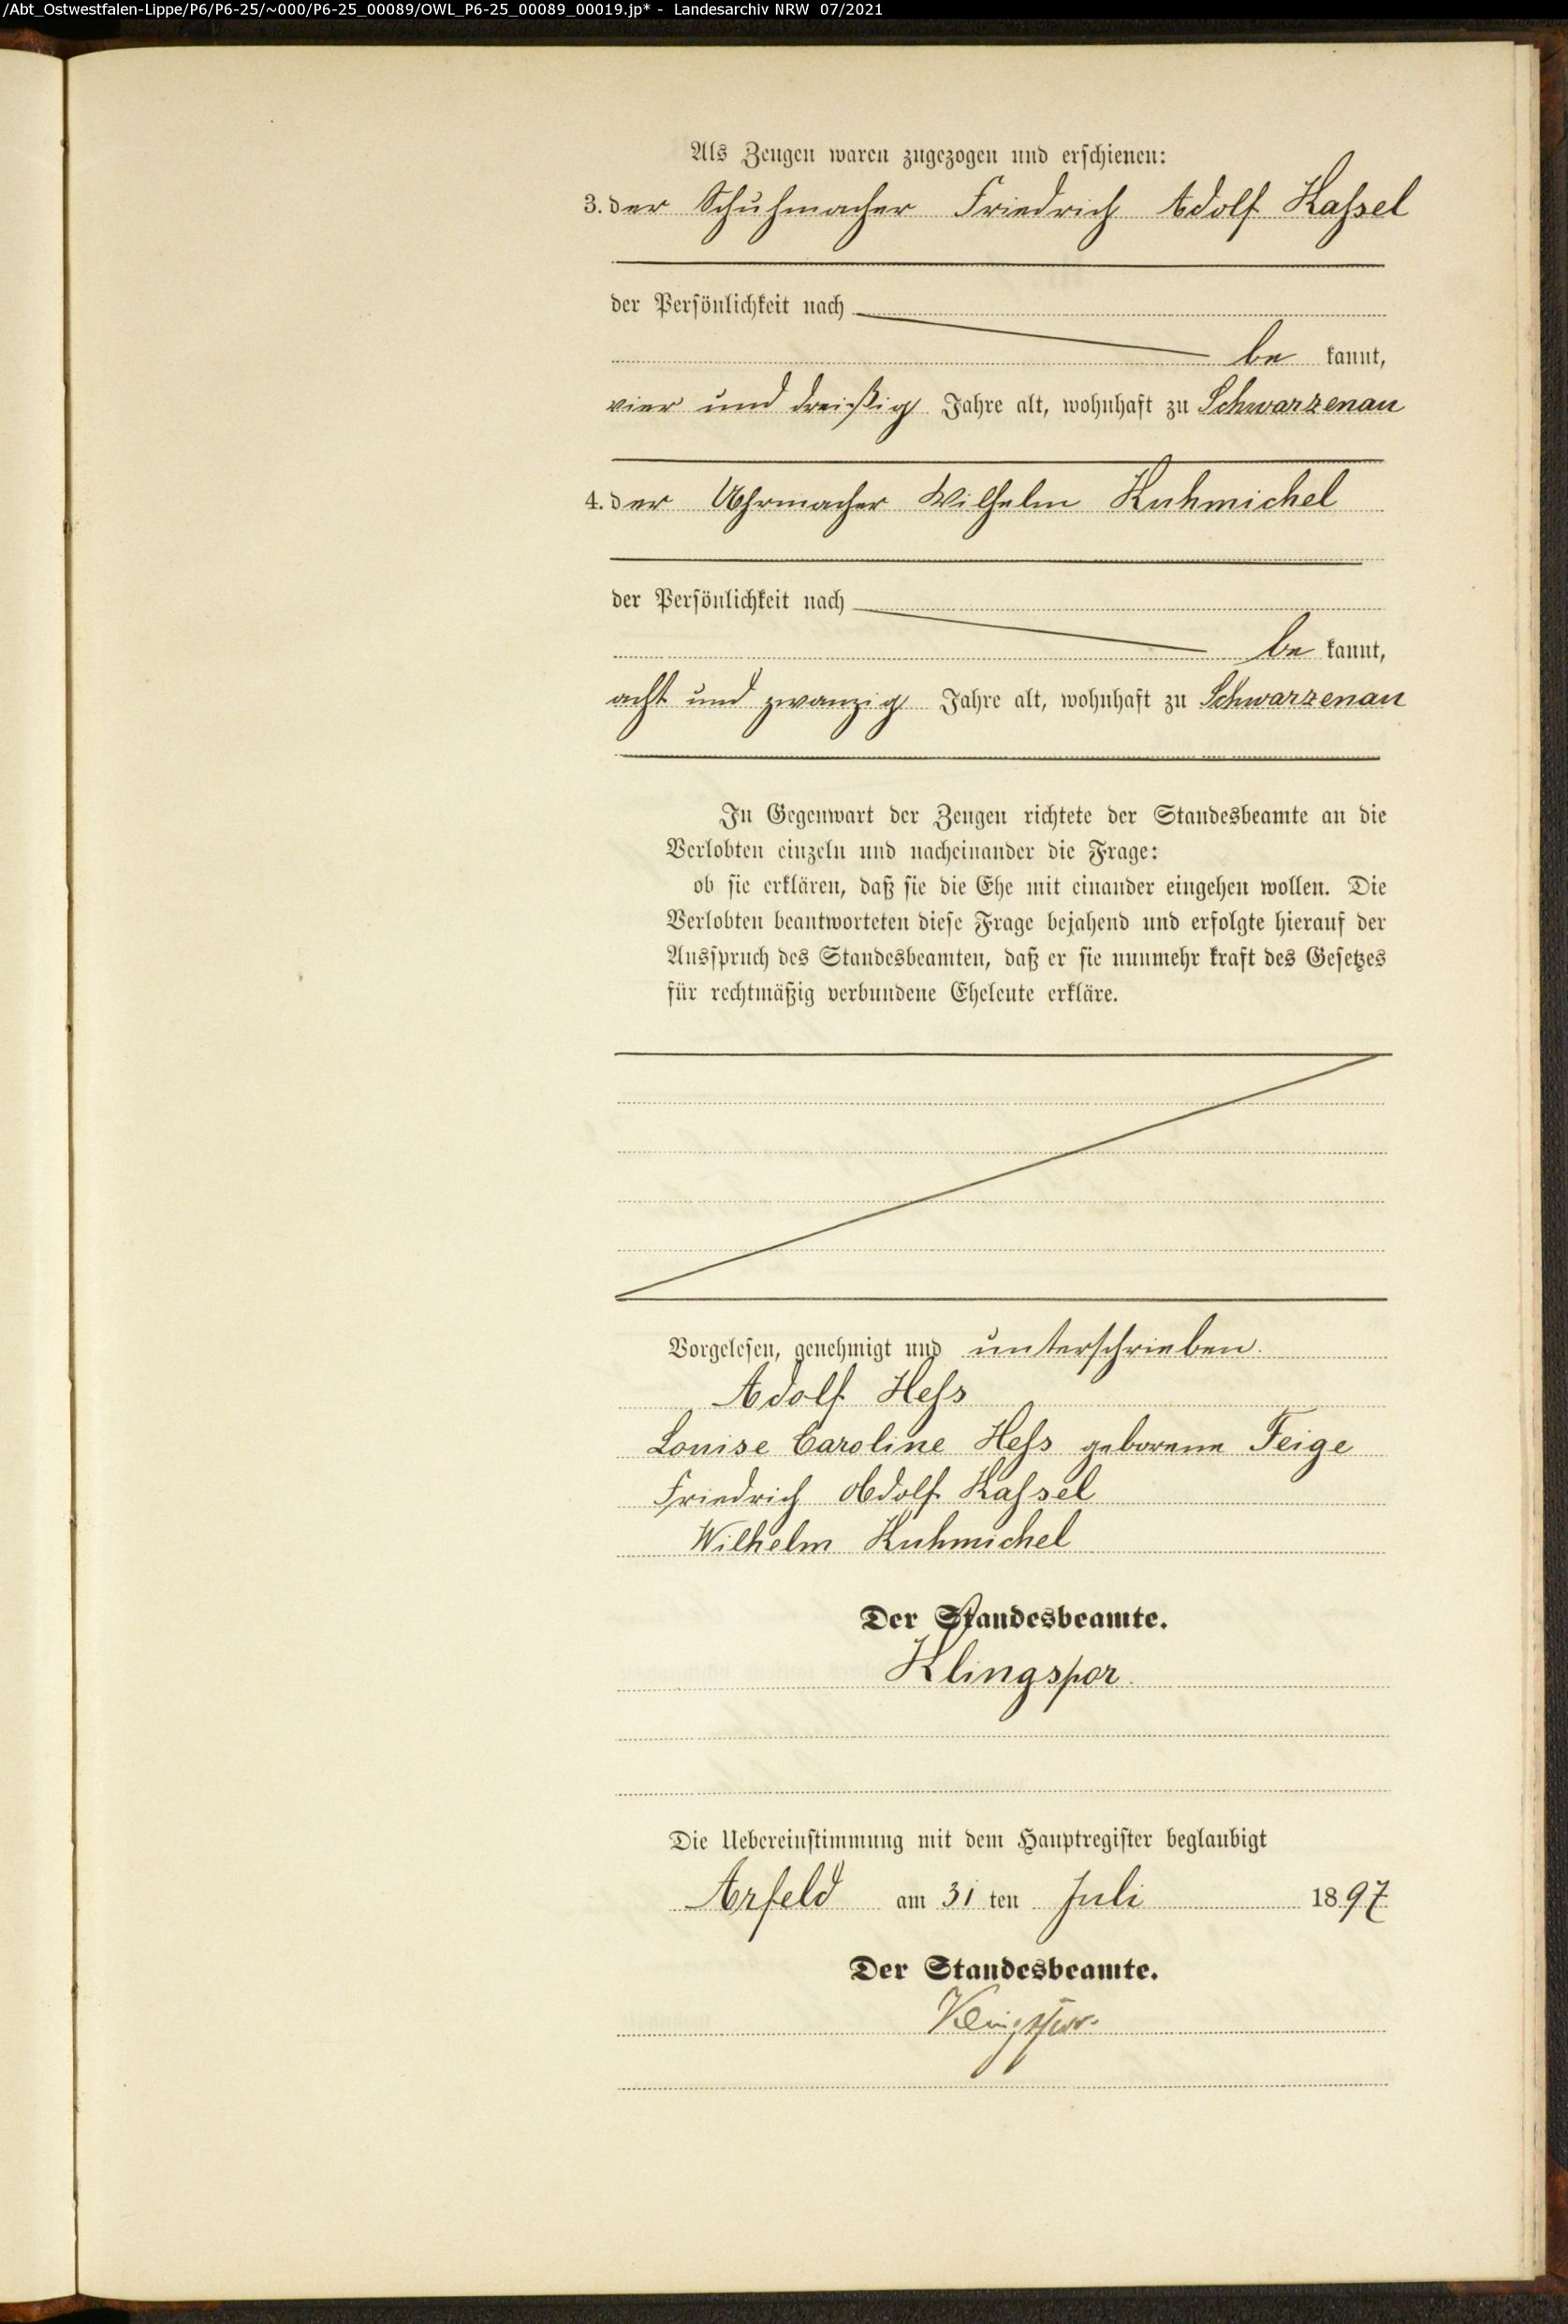 /Abt_Ostwestfalen-Lippe/P6/P6-25/~000/P6-25_00089/OWL_P6-25_00089_00019.jp* - Landesarchiv NRW 07/2021
Als Zeugen waren zugezogen und erschienen:
3. der Schuhmacher Friedrich Adolf Kaſsel
der Persönlichkeit nach
be kannt,
vier und dreißig Jahre alt, wohnhaft zu Schwarzenau
4. der Uhrmacher Wilhelm Kuhmichel
der Persönlichkeit nach
be kannt,
acht und zwanzig Jahre alt, wohnhaft zu Schwarzenau
In Gegenwart der Zeugen richtete der Standesbeamte an die
Verlobten einzeln und nacheinander die Frage:
ob sie erklären, daß sie die Ehe mit einander eingehen wollen. Die
Verlobten beantworteten diese Frage bejahend und erfolgte hierauf der
Ausspruch des Standesbeamten, daß er sie nunmehr kraft des Gesetzes
für rechtmäßig verbundene Eheleute erkläre.
Vorgelesen, genehmigt und unterschrieben.
Adolf Heſs
Louise Caroline Heſs geborene Feige
Friedrich Adolf Kaſsel
Wilhelm Kuhmichel
Der Standesbeamte.
Klingspor.
Die Uebereinstimmung mit dem Hauptregister beglaubigt
Arfeld am 31 ten Juli 1897
Der Standesbeamte.
Klingspor.